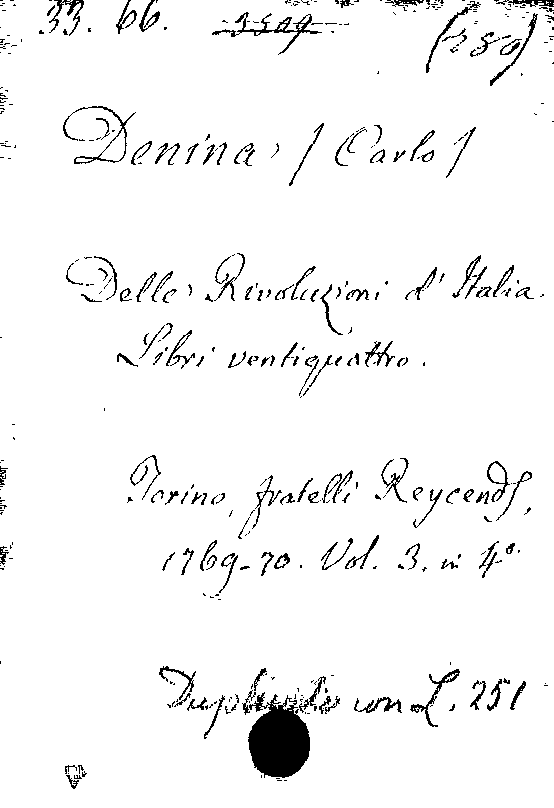 33. 66. 3509 (789)
Denina, / Carlo /
Delle Rivoluzioni d'Italia.
Libri ventiquattro.
Torino, fratelli Reycends,
1769-70. Vol. 3. in 4°.
con L. 251